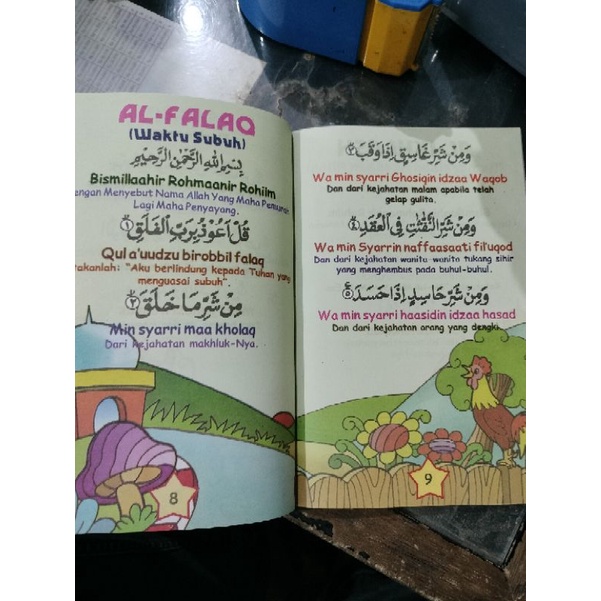 AL-FALAQ
(Waktu Subuh)
بِسْمِ اللهِ الرَّحْمٰنِ الرَّحِيْمِ
Bismillaahir Rohmaanir Rohiim
engan Menyebut Nama Allah Yang Maha Pemurah
Lagi Maha Penyayang.
قُلْ اَعُوْذُ بِرَبِّ الْفَلَقِ ۝١
Qul a'uudzu birobbil falaq
takanlah: "Aku berlindung kepada Tuhan yang
menguasai subuh".
مِنْ شَرِّ مَا خَلَقَ ۝٢
Min syarri maa kholaq
Dari kejahatan makhluk-Nya.
8
وَمِنْ شَرِّ غَاسِقٍ اِذَا وَقَبَ ۝٣
Wa min syarri Ghosiqin idzaa Waqob
Dan dari kejahatan malam apabila telah
gelap gulita.
وَمِنْ شَرِّ النَّفّٰثٰتِ فِى الْعُقَدِ ۝٤
Wa min Syarrin naffaasaati fil'uqod
Dan dari kejahatan wanita-wanita tukang sihir
yang menghembus pada buhul-buhul.
وَمِنْ شَرِّ حَاسِدٍ اِذَا حَسَدَ ۝٥
Wa min syarri haasidin idzaa hasad
Dan dari kejahatan orang yang dengki
9